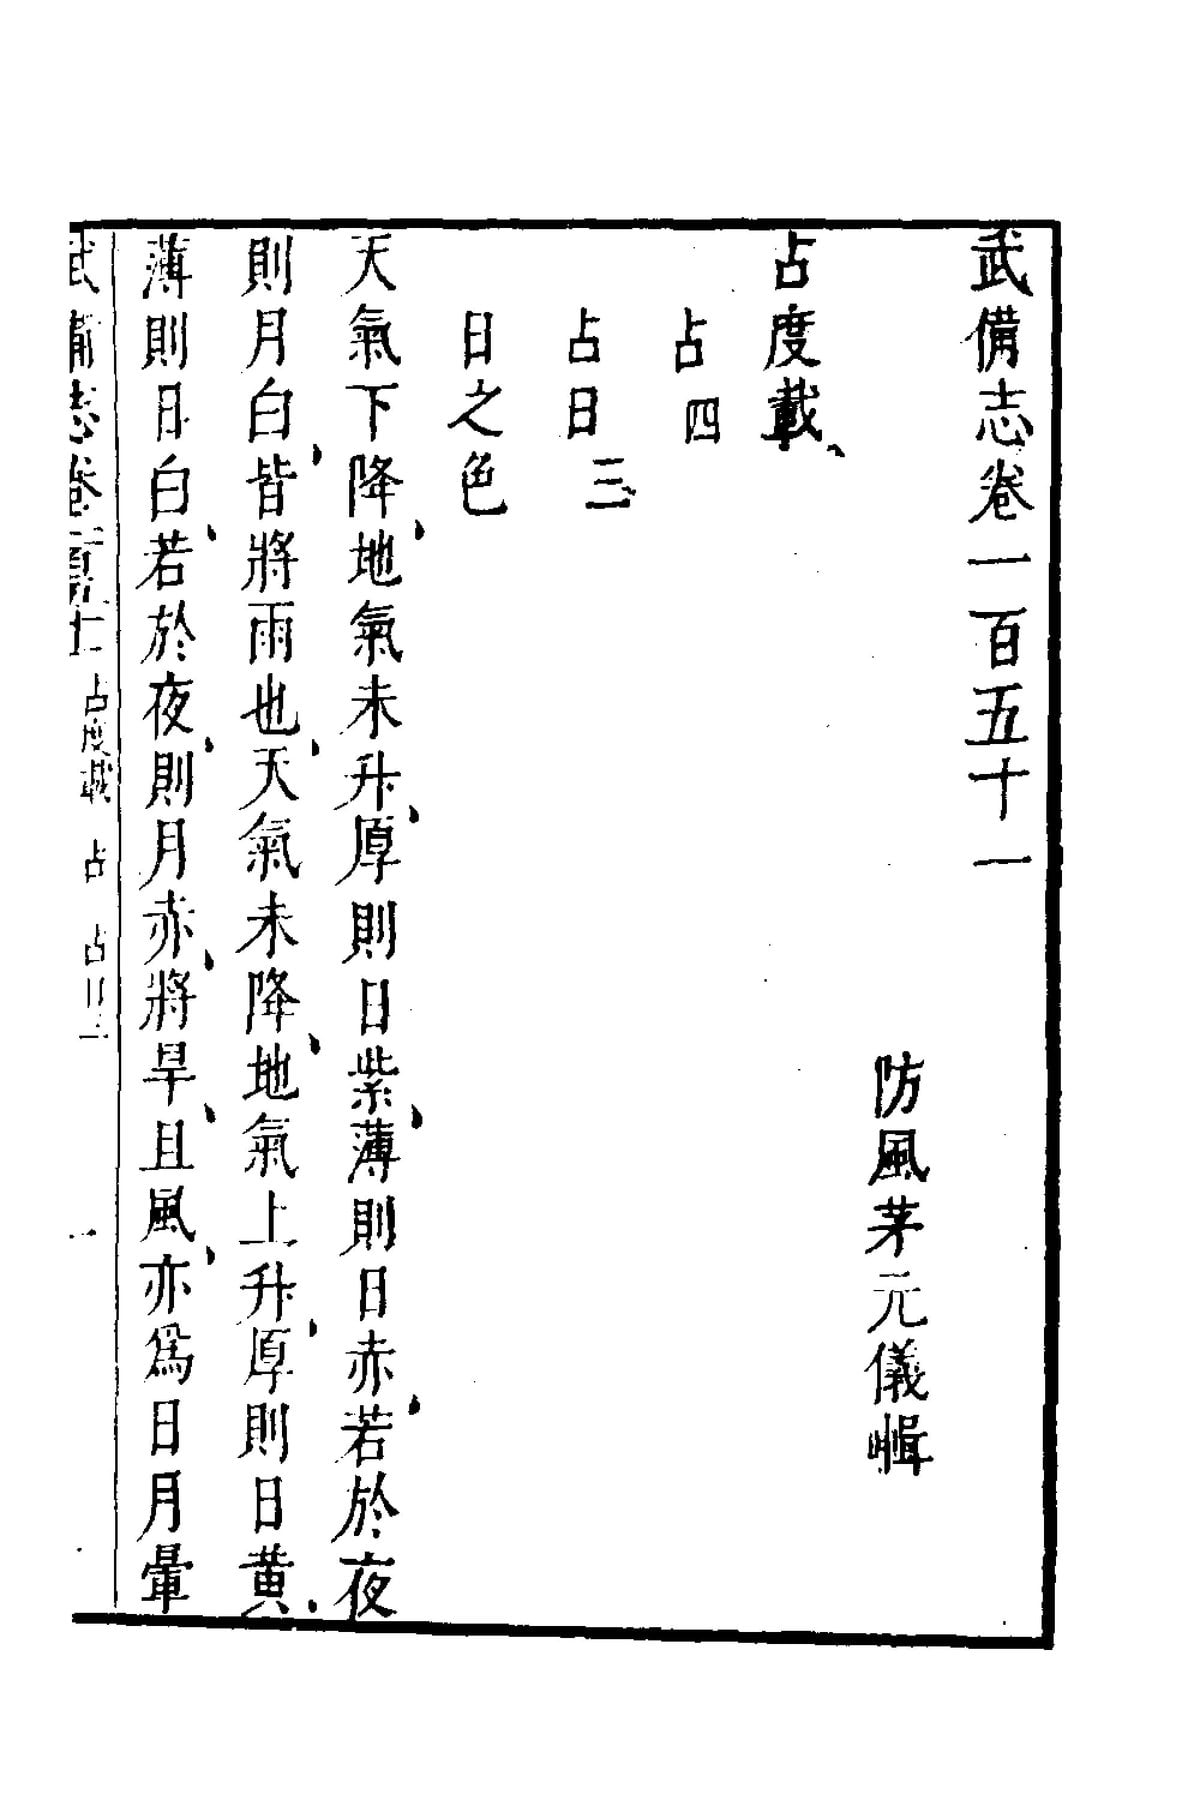 武備志卷一百五十一
防風茅元儀輯
占度載
占四
占日三
日之色
天氣下降地氣未升厚則日紫薄則日赤若於夜
則月白皆將雨也天氣未降地氣上升厚則日黄
薄則日白若於夜則月赤將旱且風亦爲日月暈
武備志卷 占度載 占 占日